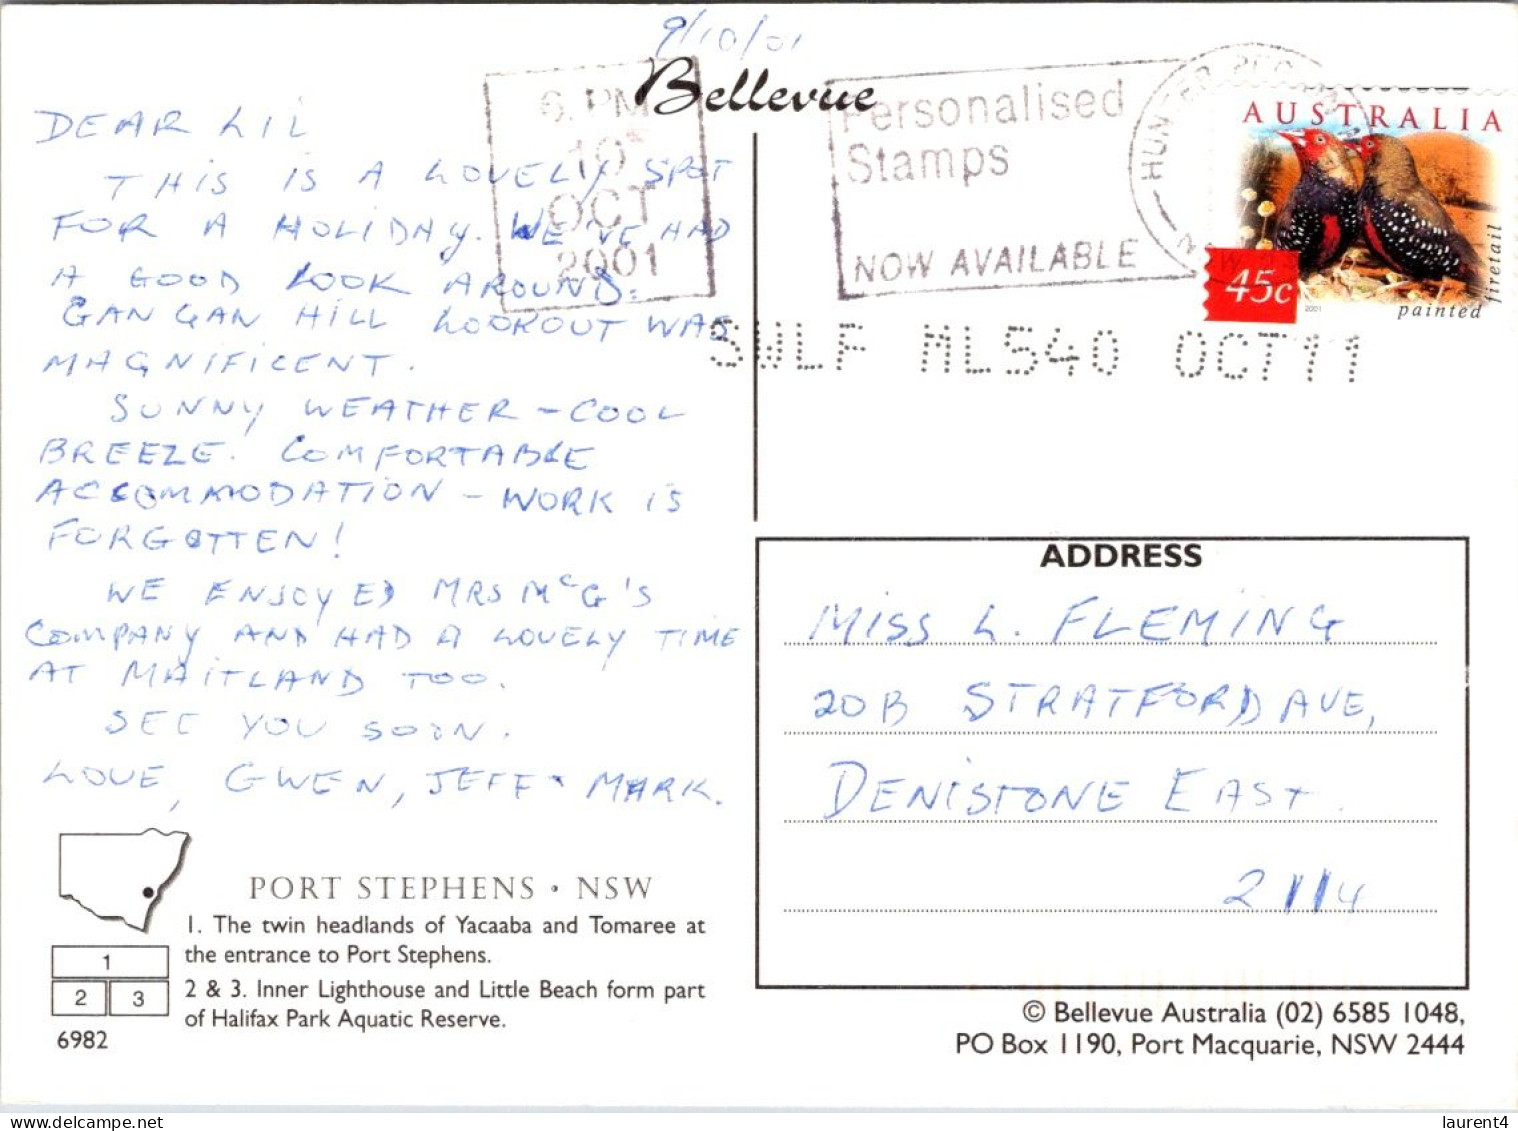 9/10/01
Bellevue
DEAR LIL
THIS IS A LOVELY SPOT
FOR A HOLIDAY. WE'VE HAD
A GOOD LOOK AROUND.
GAN GAN HILL LOOKOUT WAS
MAGNIFICENT.
SUNNY WEATHER - COOL
BREEZE. COMFORTABLE
ACCOMMODATION - WORK IS
FORGOTTEN!
WE ENJOYED MRS McG'S
COMPANY AND HAD A LOVELY TIME
AT MAITLAND TOO.
SEE YOU SOON.
LOVE, GWEN, JEFF & MARK.
PORT STEPHENS • NSW
1. The twin headlands of Yacaaba and Tomaree at
the entrance to Port Stephens.
2 & 3. Inner Lighthouse and Little Beach form part
of Halifax Park Aquatic Reserve.
1
2 3
6982
6 PM
10
OCT
2001
Personalised
Stamps
NOW AVAILABLE
AUSTRALIA
45c
2001
painted
firetail
SWLF ML540 OCT11
ADDRESS
MISS L. FLEMING
20B STRATFORD AVE,
DENISTONE EAST.
2114
© Bellevue Australia (02) 6585 1048,
PO Box 1190, Port Macquarie, NSW 2444
laurent4